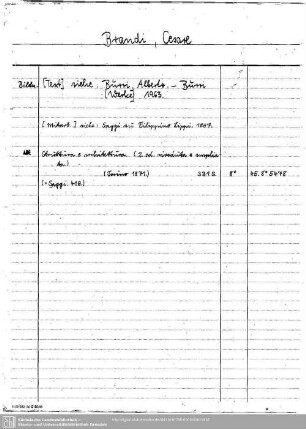 Brandi, Cesare
Bildn. [Text] siehe: Burri, Alberto. - Burri
[Werke] 1963.
[Mitarb.] siehe: Saggi su Filippino Lippi. 1957.
ABE Struttura e architettura. (2. ed. riveduta e amplia-
ta.)
(Torino 1971.) 331 S. 8° 45. 8° 5478
(= Saggi. 418.)